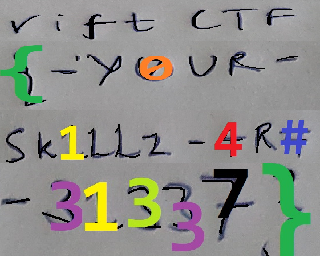 rift CTF
{-Y0UR-
Sk1LLz-4R#
-31337}